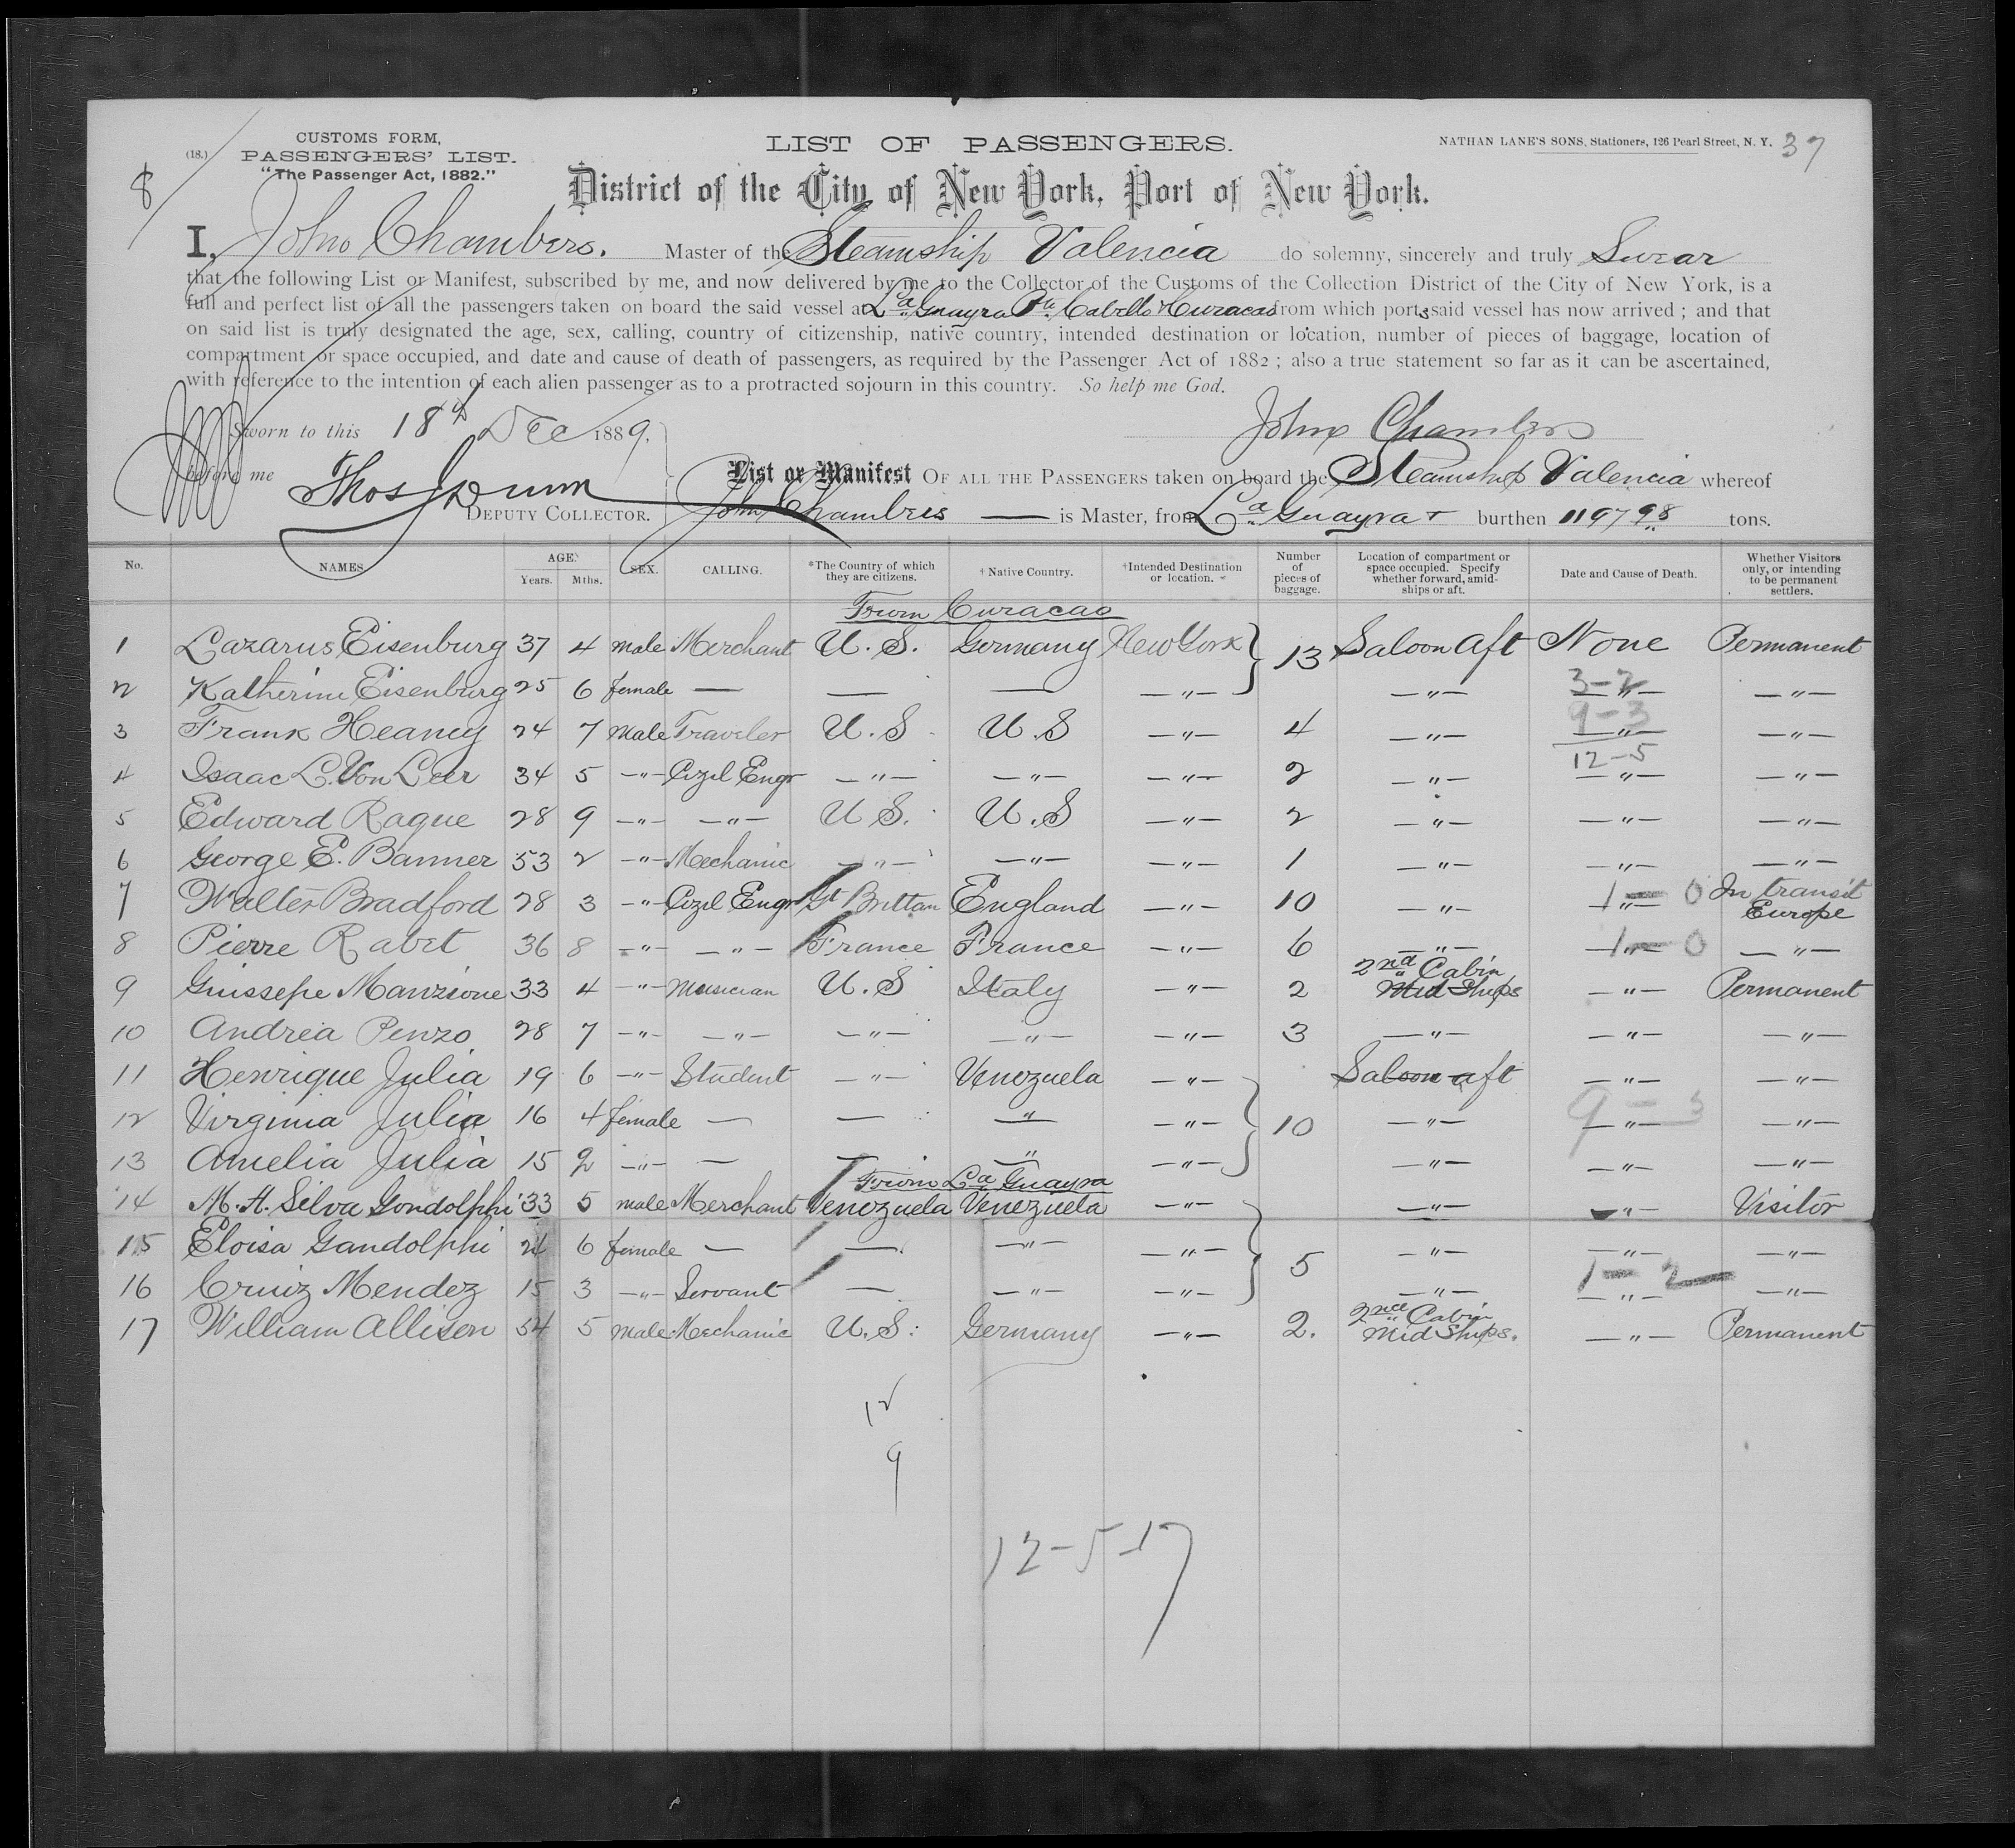 (18.)
CUSTOMS FORM,
PASSENGERS' LIST.
"The Passenger Act, 1882."
8
LIST OF PASSENGERS.
NATHAN LANE'S SONS, Stationers, 126 Pearl Street, N. Y. 37
District of the City of New York, Port of New York.
I, John Chambers. Master of the Steamship Valencia do solemny, sincerely and truly Swear
that the following List or Manifest, subscribed by me, and now delivered by me to the Collector of the Customs of the Collection District of the City of New York, is a
full and perfect list of all the passengers taken on board the said vessel at La Guayra Pto. Cabello & Curacao from which ports said vessel has now arrived; and that
on said list is truly designated the age, sex, calling, country of citizenship, native country, intended destination or location, number of pieces of baggage, location of
compartment or space occupied, and date and cause of death of passengers, as required by the Passenger Act of 1882; also a true statement so far as it can be ascertained,
with reference to the intention of each alien passenger as to a protracted sojourn in this country. So help me God.
Sworn to this 18th Dec 1889, John Chambers
before me Thos Dunn
DEPUTY COLLECTOR.
List or Manifest OF ALL THE PASSENGERS taken on board the Steamship Valencia whereof
John Chambers — is Master, from La Guayra + burthen 1197 98 tons.
No. NAMES AGE. Years. Mths. SEX. CALLING. *The Country of which they are citizens. †Native Country. †Intended Destination or location. Number of pieces of baggage. Location of compartment or space occupied. Specify whether forward, amid-ships or aft. Date and Cause of Death. Whether Visitors only, or intending to be permanent settlers.
From Curacao
1 Lazarus Eisenburg 37 4 male Merchant U.S. Germany New York } 13 Saloon Aft None Permanent
2 Katherine Eisenburg 25 6 female — — — —"— —"— 3-2 —"— —"—
3 Frank Heaney 24 7 Male Traveler U.S. U.S —"— 4 —"— 9-3 —"— —"—
4 Isaac L. Von Leer 34 5 —"— Civil Engr —"— —"— —"— 2 —"— 12-5 —"— —"—
5 Edward Rague 28 9 —"— —"— U S. U.S —"— 2 —"— —"— —"—
6 George E. Banner 53 2 —"— Mechanic —"— —"— —"— 1 —"— —"— —"—
7 Walter Bradford 28 3 —"— Civil Engr Gt Brittan England —"— 10 —"— 1-0 —"— In transit Europe
8 Pierre Rabet 36 8 —"— —"— France France —"— 6 —"— 1-0 —"— —"—
9 Guissepe Manzione 33 4 —"— Musician U.S Italy —"— 2 2nd Cabin Mid Ships —"— Permanent
10 Andrea Penzo 28 7 —"— —"— —"— —"— —"— 3 —"— —"— —"—
11 Henrique Julia 19 6 —"— Student —"— Venozuela —"— Saloon aft —"— —"—
12 Virginia Julia 16 4 female — — " —"— } 10 —"— 9-3 —"— —"—
13 Amelia Julia 15 2 —"— — — " —"— —"— —"— —"—
From La Guayra
14 M. A. Silva Gondolphi 33 5 male Merchant Venozuela Venezuela —"— —"— —"— Visitor
15 Eloisa Gandolphi 24 6 female — — —"— —"— } 5 —"— —"— —"—
16 Cruiz Mendez 15 3 —"— Servant — —"— —"— —"— 1-2 —"— —"—
17 William Allison 54 5 Male Mechanic U.S. Germany —"— 2. 2nd Cabin Mid Ships. —"— Permanent
12
9
12-5-17